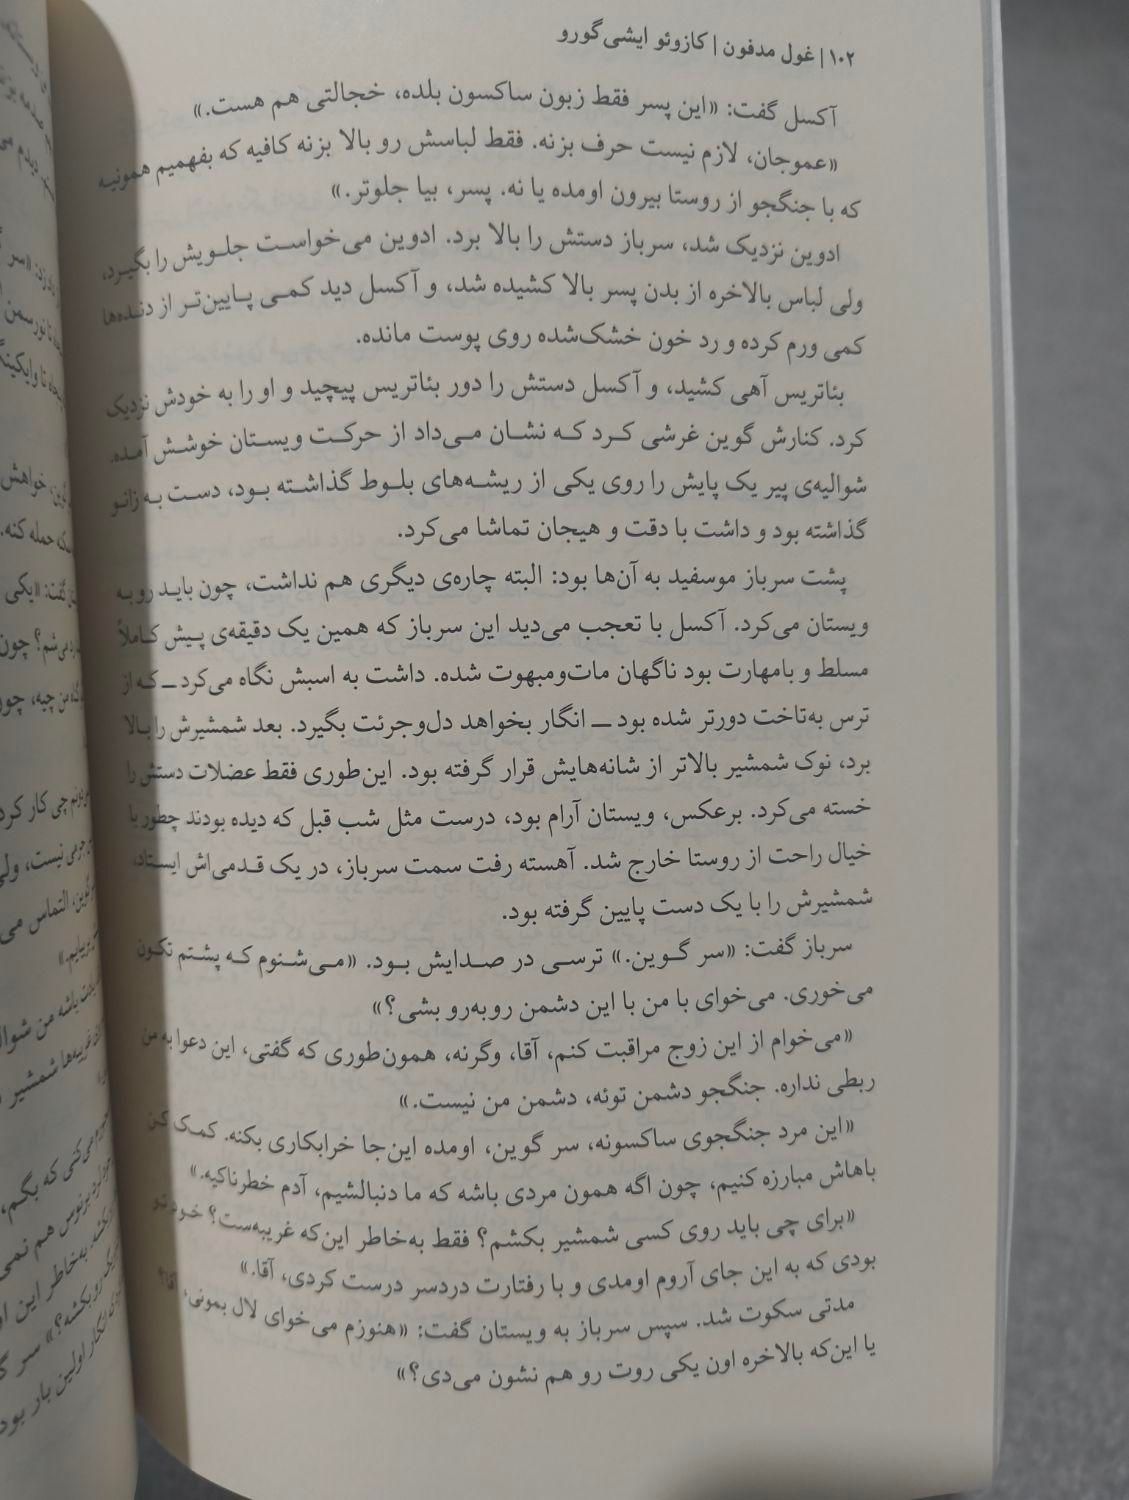 ۱۰۲ | غول مدفون | کازوئو ایشی‌گورو
آکسل گفت: «این پسر فقط زبون ساکسون بلده، خجالتی هم هست.»
«عموجان، لازم نیست حرف بزنه. فقط لباسش رو بالا بزنه کافیه که بفهمیم همونیه
که با جنگجو از روستا بیرون اومده یا نه. پسر، بیا جلوتر.»
ادوین نزدیک شد، سرباز دستش را بالا برد. ادوین می‌خواست جلویش را بگیرد،
ولی لباس بالاخره از بدن پسر بالا کشیده شد، و آکسل دید کمی پایین‌تر از دنده‌ها
کمی ورم کرده و رد خون خشک‌شده روی پوست مانده.
بئاتریس آهی کشید، و آکسل دستش را دور بئاتریس پیچید و او را به خودش نزدیک
کرد. کنارش گوین غرشی کرد که نشان می‌داد از حرکت ویستان خوشش آمده.
شوالیه‌ی پیر یک پایش را روی یکی از ریشه‌های بلوط گذاشته بود، دست به زانو
گذاشته بود و داشت با دقت و هیجان تماشا می‌کرد.
پشت سرباز موسفید به آن‌ها بود: البته چاره‌ی دیگری هم نداشت، چون باید رو به
ویستان می‌کرد. آکسل با تعجب می‌دید این سرباز که همین یک دقیقه‌ی پیش کاملاً
مسلط و بامهارت بود ناگهان مات‌ومبهوت شده. داشت به اسبش نگاه می‌کرد ــ که از
ترس به‌تاخت دورتر شده بود ــ انگار بخواهد دل‌وجرئت بگیرد. بعد شمشیرش را بالا
برد، نوک شمشیر بالاتر از شانه‌هایش قرار گرفته بود. این‌طوری فقط عضلات دستش را
خسته می‌کرد. برعکس، ویستان آرام بود، درست مثل شب قبل که دیده بودند چطور با
خیال راحت از روستا خارج شد. آهسته رفت سمت سرباز، در یک قدمی‌اش ایستاد،
شمشیرش را با یک دست پایین گرفته بود.
سرباز گفت: «سر گوین.» ترسی در صدایش بود. «می‌شنوم که پشتم تکون
می‌خوری. می‌خوای با من با این دشمن روبه‌رو بشی؟»
«می‌خوام از این زوج مراقبت کنم، آقا، وگرنه، همون‌طوری که گفتی، این دعوا به من
ربطی نداره. جنگجو دشمن توئه، دشمن من نیست.»
«این مرد جنگجوی ساکسونه، سر گوین، اومده این‌جا خرابکاری بکنه. کمک کن
باهاش مبارزه کنیم، چون اگه همون مردی باشه که ما دنبالشیم، آدم خطرناکیه.»
«برای چی باید روی کسی شمشیر بکشم؟ فقط به‌خاطر این‌که غریبه‌ست؟ خود تو
بودی که به این جای آروم اومدی و با رفتارت دردسر درست کردی، آقا.»
مدتی سکوت شد. سپس سرباز به ویستان گفت: «هنوزم می‌خوای لال بمونی، آقا؟
یا این‌که بالاخره اون یکی روت رو هم نشون می‌دی؟»